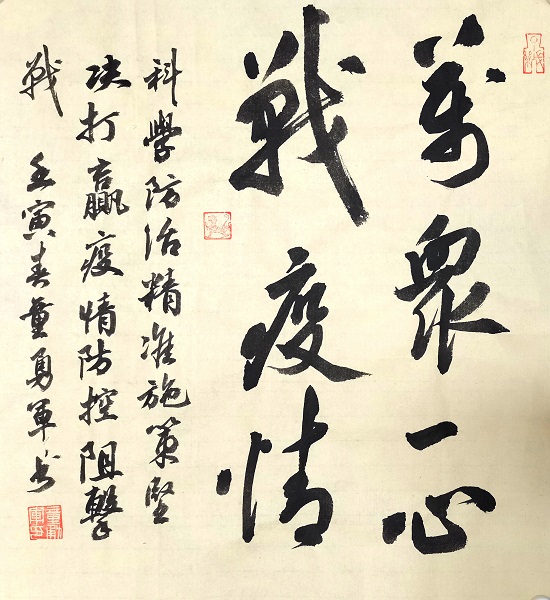 萬衆一心
戰疫情
科學防治精准施策堅
决打贏疫情防控阻擊
戰
壬寅春董勇軍书